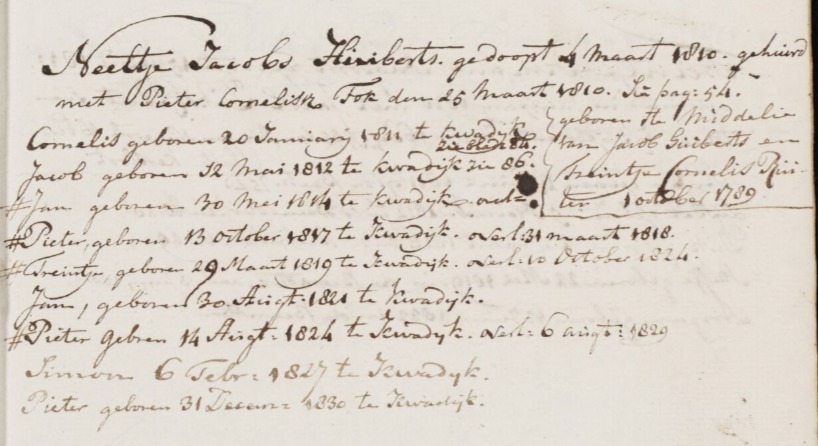 Neeltje Jacobs Huiberts. gedoopt 4 Maart 1810. gehuwd
met Pieter Cornelisz Tok den 25 Maart 1810. Zie pag: 54.
Cornelis geboren 20 Januarij 1811 te kwadijk
zie blad: 84.
Jacob geboren 12 Mai 1812 te kwadijk zie 86.
# Jan geboren 30 Mei 1814 te kwadijk. overl=
# Pieter, geboren 13 October 1817 te Kwadijk. overl: 31 maart 1818.
# Treintje geboren 29 Maart 1819 te Kwadijk. overl: 10 October 1824.
Jan, geboren 30. Augt: 1821 te Kwadijk.
# Pieter gebren 14 Augt: 1824 te Kwadyk. overl: 6 augt: 1829
Simon 6 Febr: 1827 te Kwadyk.
Pieter geboren 31 Decem= 1830 te Kwadijk.
geboren te Middelie
van Jacob Huiberts en
Treintje Cornelis Rui-
ter 1 october 1789.